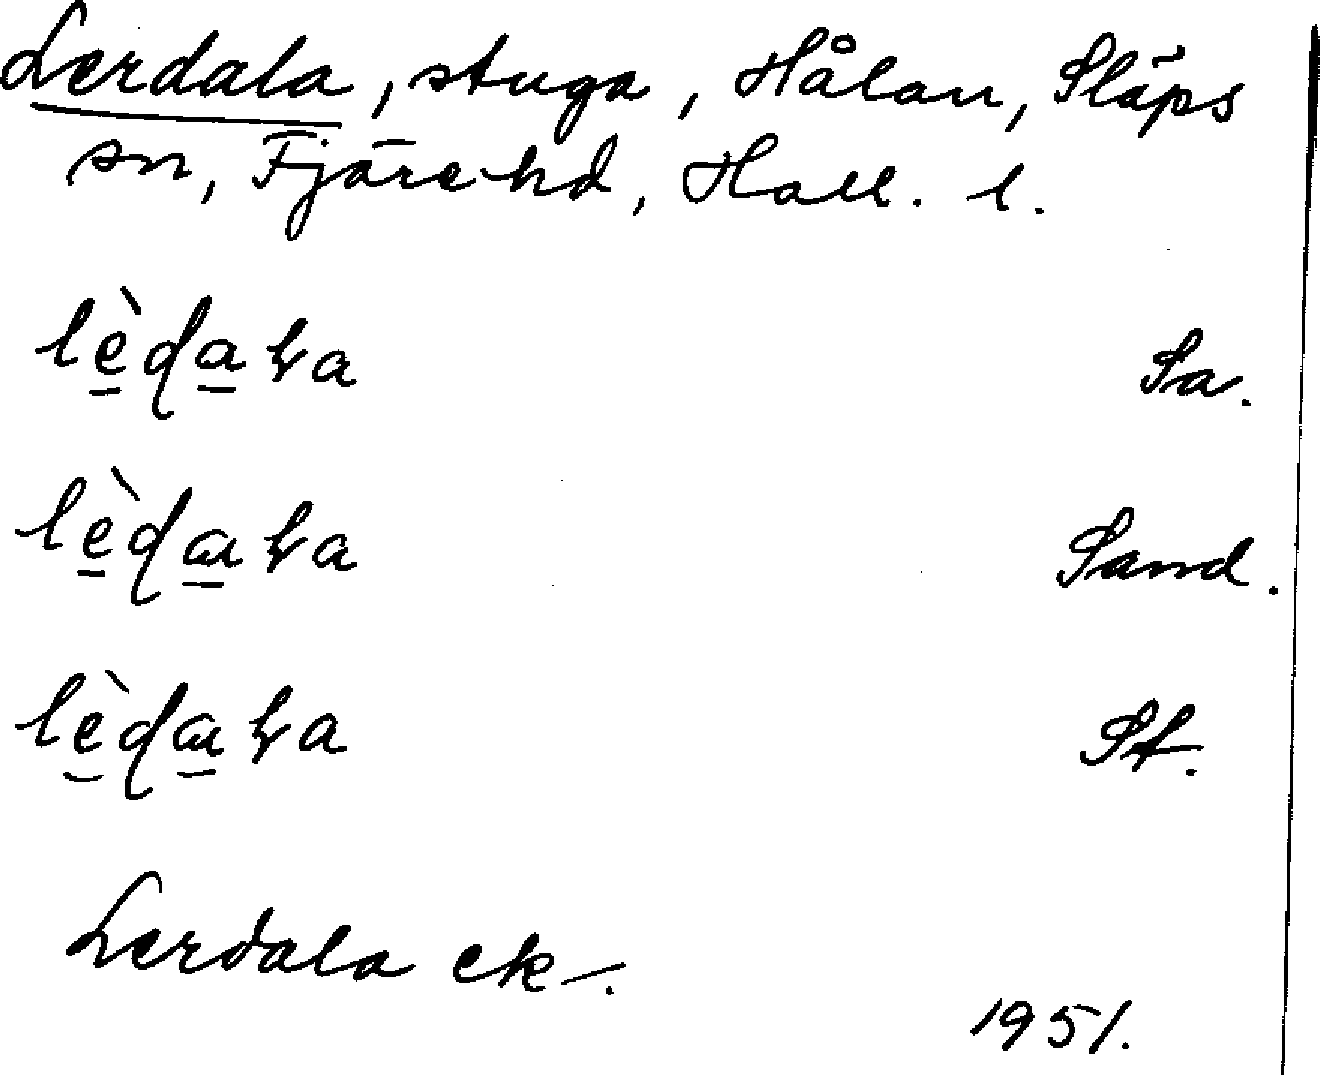 Lerdala, stuga, Hålan, Släps
sn, Fjäre hd, Hall. l.
lèḍaɫa Sa.
lèḍaɫa Sand.
lèḍaɫa St.
Lerdala ek.
1951.